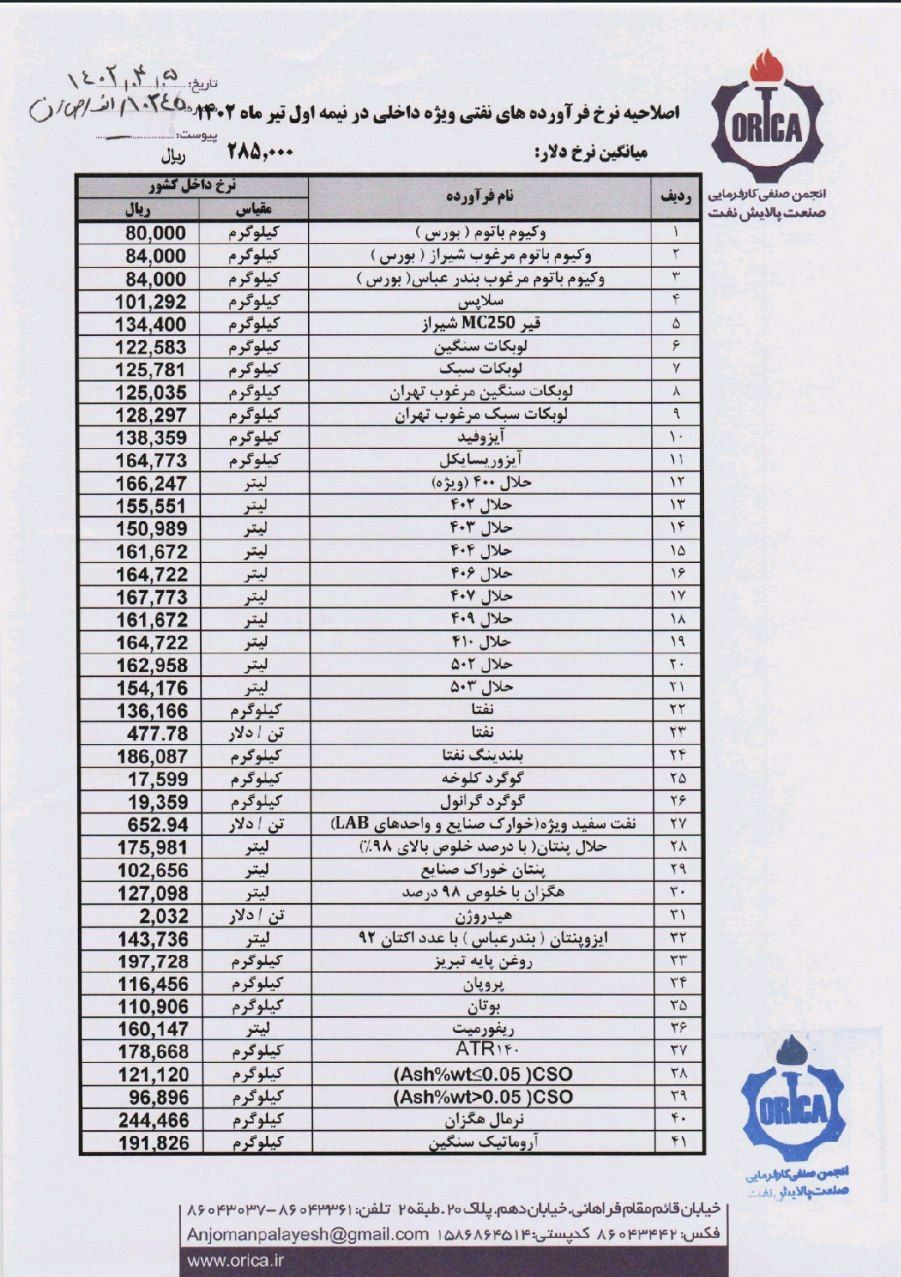 تاریخ: ۱۴۰۲,۴,۵
پیوست:
ORICA
انجمن صنفی کارفرمایی
صنعت پالایش نفت
اصلاحیه نرخ فرآورده های نفتی ویژه داخلی در نیمه اول تیر ماه ۱۴۰۲
میانگین نرخ دلار: ۲۸۵,۰۰۰ ریال
ردیف نام فرآورده نرخ داخل کشور
مقیاس ریال
۱ وکیوم باتوم ( بورس ) کیلوگرم 80,000
۲ وکیوم باتوم مرغوب شیراز ( بورس ) کیلوگرم 84,000
۳ وکیوم باتوم مرغوب بندر عباس( بورس ) کیلوگرم 84,000
۴ سلاپس کیلوگرم 101,292
۵ قیر MC250 شیراز کیلوگرم 134,400
۶ لوبکات سنگین کیلوگرم 122,583
۷ لوبکات سبک کیلوگرم 125,781
۸ لوبکات سنگین مرغوب تهران کیلوگرم 125,035
۹ لوبکات سبک مرغوب تهران کیلوگرم 128,297
۱۰ آیزوفید کیلوگرم 138,359
۱۱ آیزوریسایکل کیلوگرم 164,773
۱۲ حلال ۴۰۰ (ویژه) لیتر 166,247
۱۳ حلال ۴۰۲ لیتر 155,551
۱۴ حلال ۴۰۳ لیتر 150,989
۱۵ حلال ۴۰۴ لیتر 161,672
۱۶ حلال ۴۰۶ لیتر 164,722
۱۷ حلال ۴۰۷ لیتر 167,773
۱۸ حلال ۴۰۹ لیتر 161,672
۱۹ حلال ۴۱۰ لیتر 164,722
۲۰ حلال ۵۰۲ لیتر 162,958
۲۱ حلال ۵۰۳ لیتر 154,176
۲۲ نفتا کیلوگرم 136,166
۲۳ نفتا تن / دلار 477.78
۲۴ بلندینگ نفتا کیلوگرم 186,087
۲۵ گوگرد کلوخه کیلوگرم 17,599
۲۶ گوگرد گرانول کیلوگرم 19,359
۲۷ نفت سفید ویژه(خوارک صنایع و واحدهای LAB) تن / دلار 652.94
۲۸ حلال پنتان( با درصد خلوص بالای ۹۸٪) لیتر 175,981
۲۹ پنتان خوراک صنایع لیتر 102,656
۳۰ هگزان با خلوص ۹۸ درصد لیتر 127,098
۳۱ هیدروژن تن / دلار 2,032
۳۲ ایزوپنتان ( بندرعباس ) با عدد اکتان ۹۲ لیتر 143,736
۳۳ روغن پایه تبریز کیلوگرم 197,728
۳۴ پروپان کیلوگرم 116,456
۳۵ بوتان کیلوگرم 110,906
۳۶ ریفورمیت لیتر 160,147
۳۷ ATR۱۴۰ کیلوگرم 178,668
۳۸ (Ash%wt≤0.05 )CSO کیلوگرم 121,120
۳۹ (Ash%wt>0.05 )CSO کیلوگرم 96,896
۴۰ نرمال هگزان کیلوگرم 244,466
۴۱ آروماتیک سنگین کیلوگرم 191,826
ORICA
انجمن صنفی کارفرمایی
صنعت پالایش نفت
خیابان قائم مقام فراهانی، خیابان دهم، پلاک ۲۰، طبقه ۲ تلفن: ۸۶۰۴۳۳۶۱-۸۶۰۴۳۰۳۷
فکس: ۸۶۰۴۳۴۴۲ کدپستی: ۱۵۸۶۸۶۴۵۱۴ Anjomanpalayesh@gmail.com
www.orica.ir